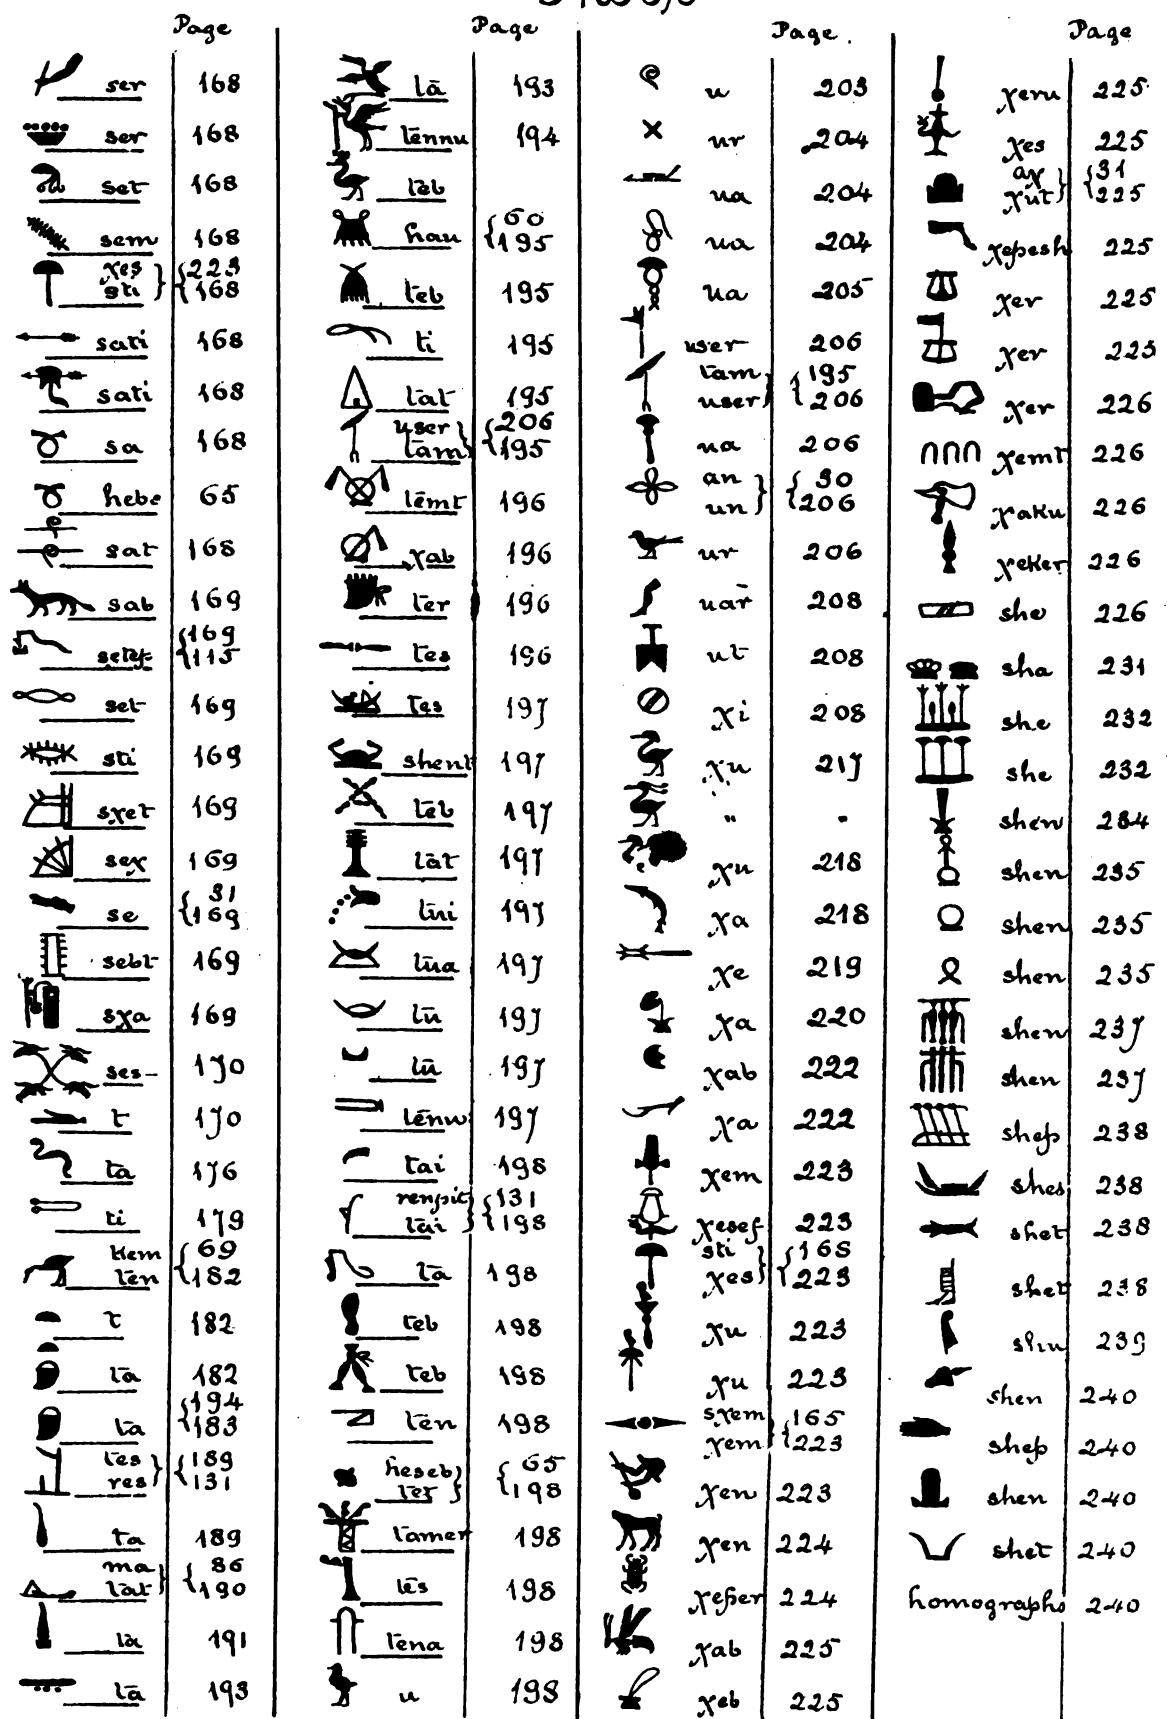 Page
ser 168
ser 168
set 168
sem 168
χes sti } { 223 168
sati 168
sati 168
sa 168
hebe 65
sat 168
sab 169
{ 169 115
set 169
sti 169
sχet 169
seχ 169
se { 31 169
sebt 169
sχa 169
ses- 170
t 170
ta 176
ti 179
kem ten { 69 182
t 182
ta 182
ta { 194 183
tes res } { 189 131
ta 189
ma tat } { 86 190
ta 191
ta 193
Page
tā 193
tennu 194
teb
hau { 60 195
teb 195
ti 195
tat 195
user tam } { 206 195
temt 196
χab 196
ter 196
tes 196
tes 197
shent 197
teb 197
tat 197
tui 197
tua 197
tu 197
tu 197
tenu 197
tai 198
renpit tai } { 131 198
ta 198
teb 198
teb 198
ten 198
heseb } { 65 198
tamer 198
tes 198
tena 198
u 198
Page
u 203
ur 204
ua 204
ua 204
ua 205
user 206
tam user } { 195 206
ua 206
an un } { 30 206
ur 206
uar 208
ut 208
χi 208
χu 217
" "
χu 218
χa 218
χe 219
χa 220
χab 222
χa 222
χem 223
χesef 223
sti χes } { 168 223
χu 223
χu 223
sχem χem } { 165 223
χen 223
χen 224
χeper 224
χab 225
χeb 225
Page
χeru 225
χes 225
aχ χut } { 31 225
χepesh 225
χer 225
χer 225
χer 226
χemt 226
χaku 226
χeker 226
she 226
sha 231
she 232
she 232
shen 234
shen 235
shen 235
shen 235
shen 237
shen 237
shep 238
shes 238
shet 238
shet 238
shu 239
shen 240
shep 240
shen 240
shet 240
homographs 240